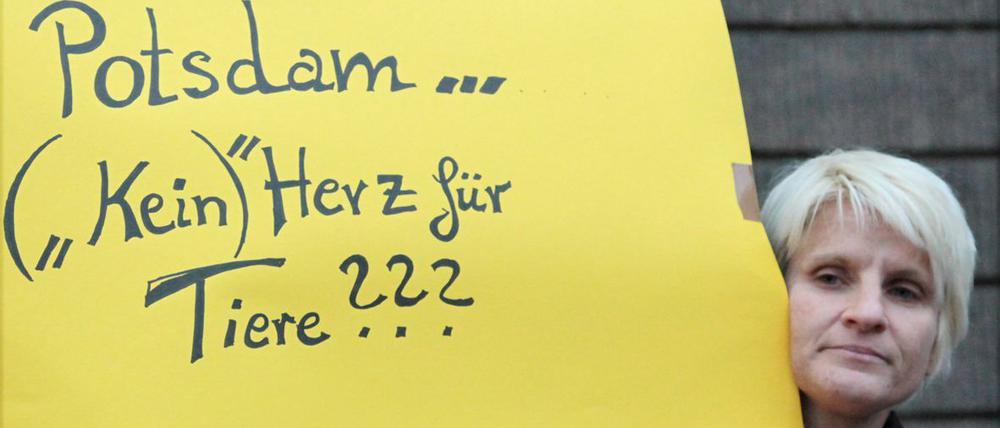 Potsdam ...
(„Kein)“ Herz für
Tiere ???